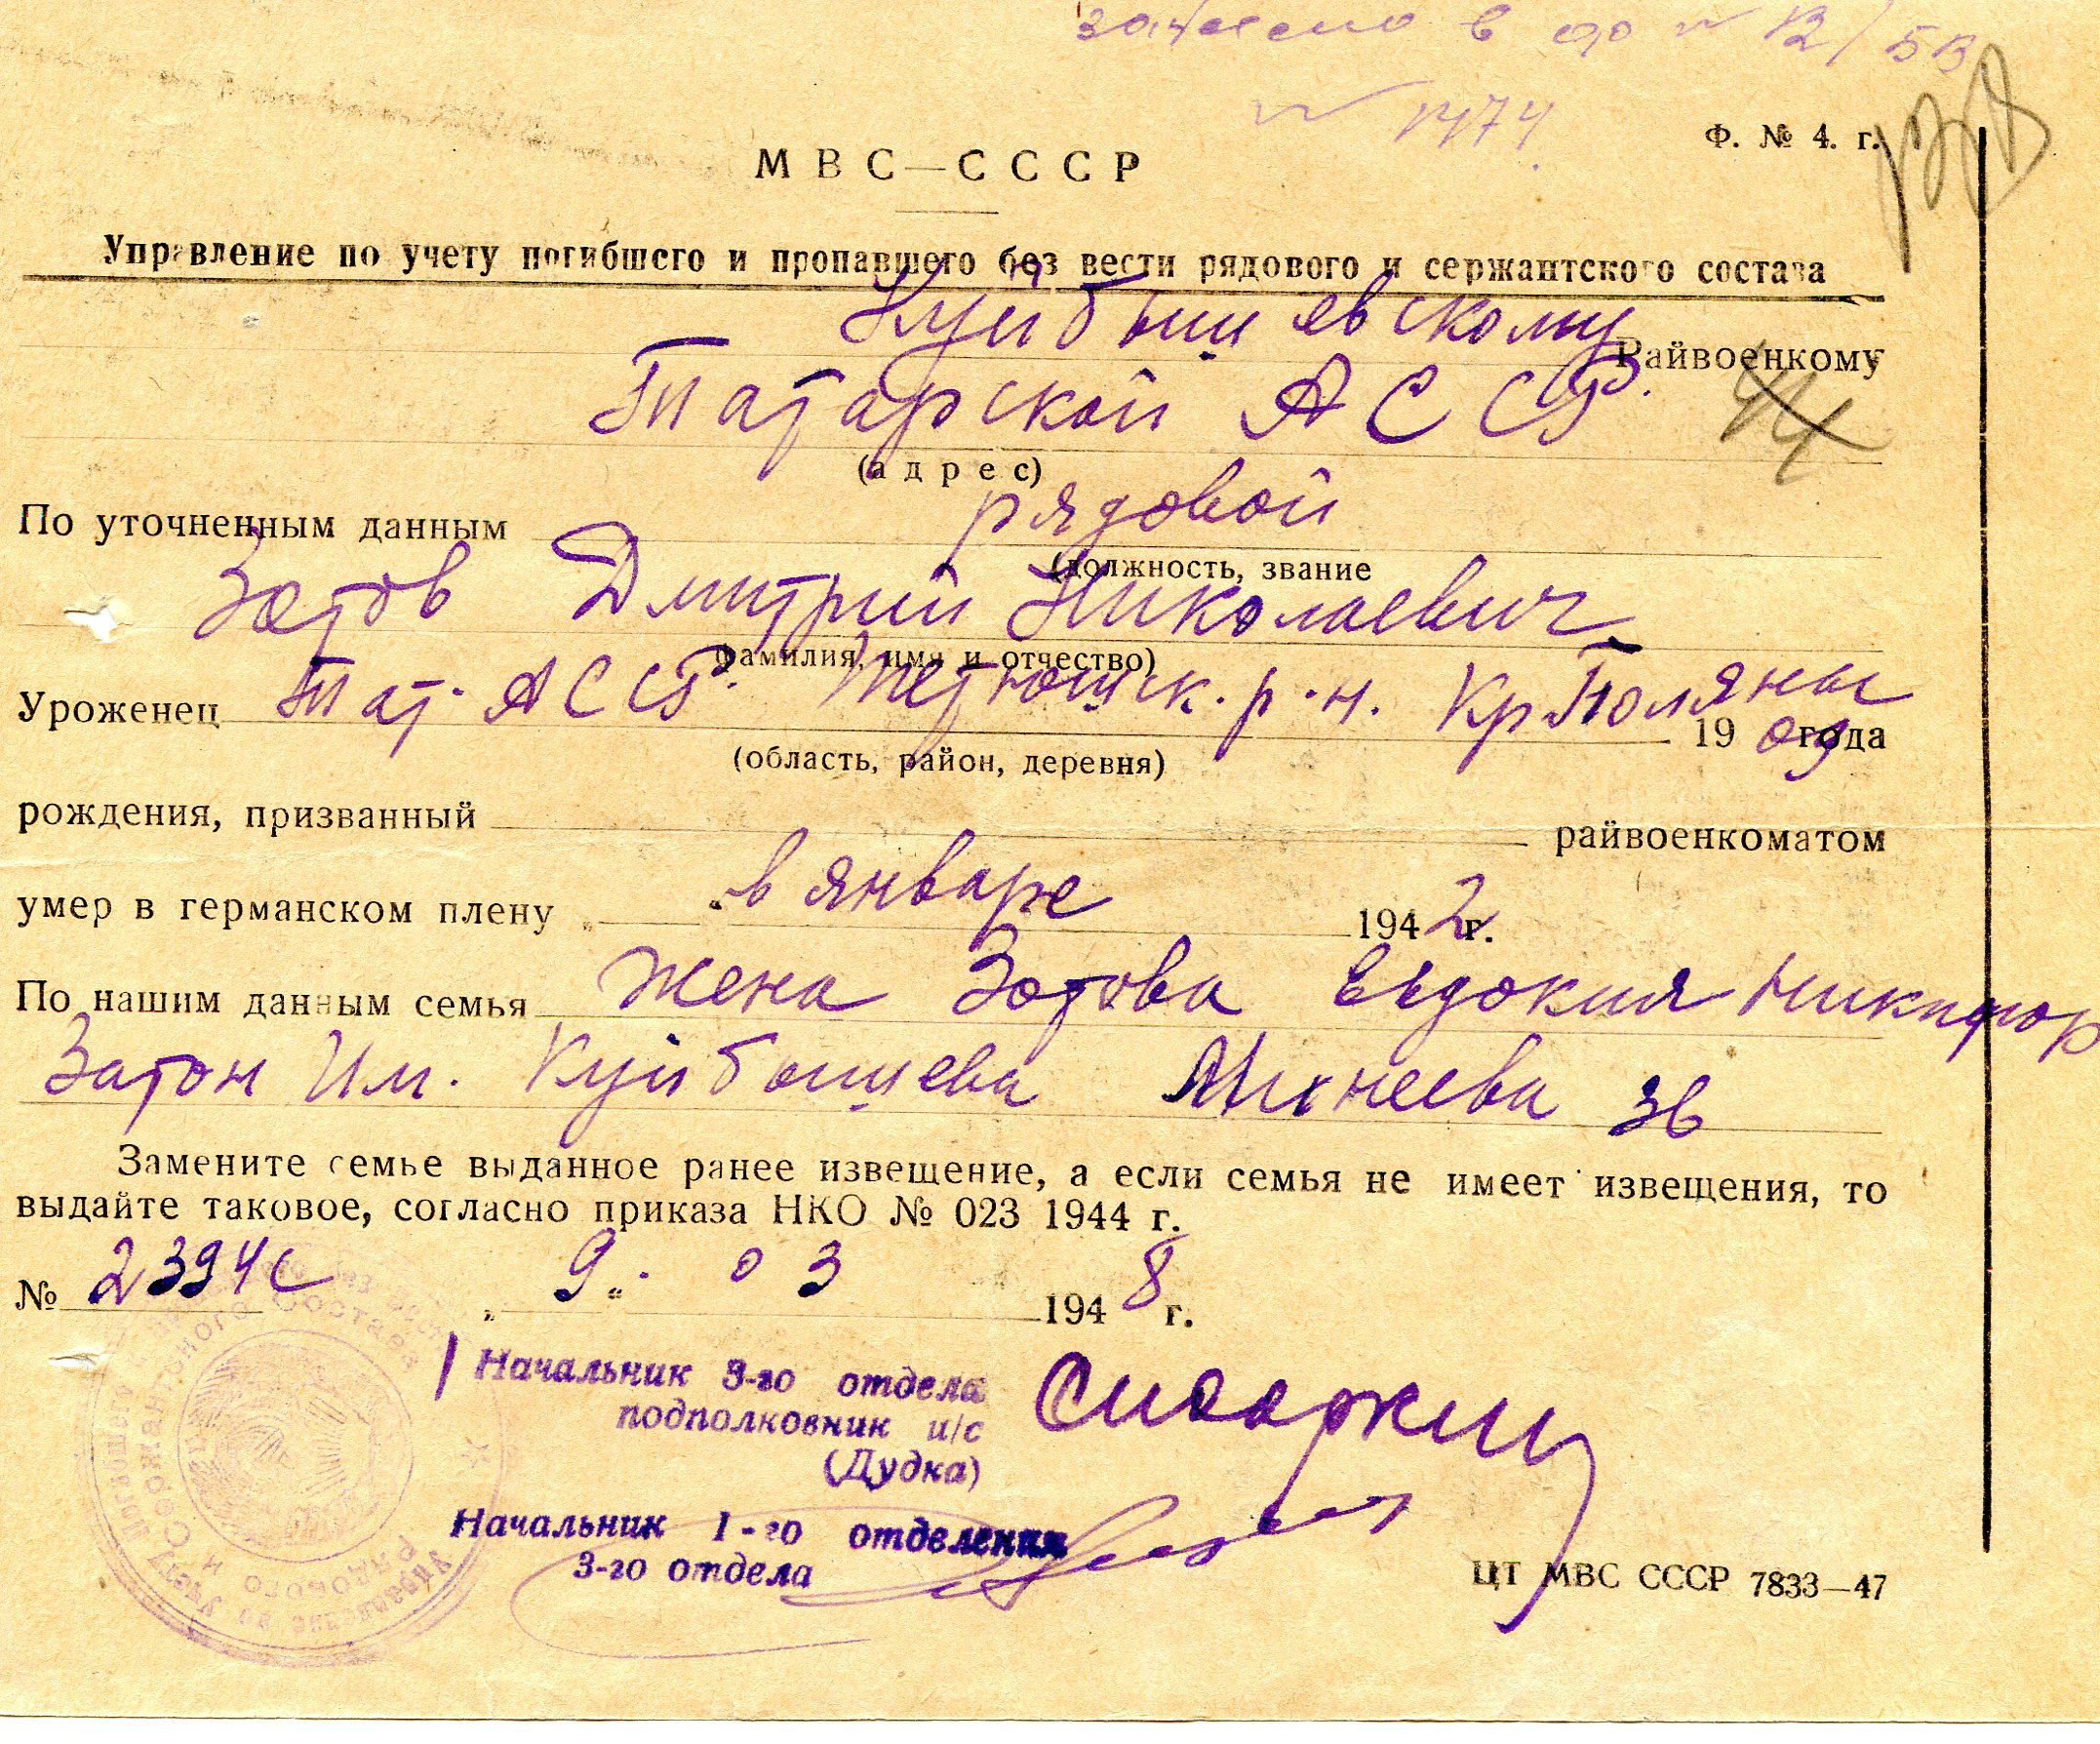 занесено в
№ 1474
Ф. № 4. г.
МВС—СССР
Управление по учету погибшего и пропавшего без вести рядового и сержантского состава
Куйбышевскому Райвоенкому
Татарской АССР.
(адрес)
По уточненным данным рядовой
(должность, звание
Зотов Дмитрий Николаевич
(фамилия, имя и отчество)
Уроженец Тат. АССР. Тетюшск. р-н. Кр Поляны 1909 года
(область, район, деревня)
рождения, призванный райвоенкоматом
умер в германском плену „ “ в январе 1942 г.
По нашим данным семья жена Зотова Евдокия Никифор
Затон Им. Куйбышева Михеева 36
Замените семье выданное ранее извещение, а если семья не имеет извещения, то
выдайте таковое, согласно приказа НКО № 023 1944 г.
№ 2394с „ 9 “ 03 1948 г.
Начальник 3-го отдела
подполковник и/с
(Дудка)
Начальник 1-го отделения
3-го отдела
ЦТ МВС СССР 7833—47